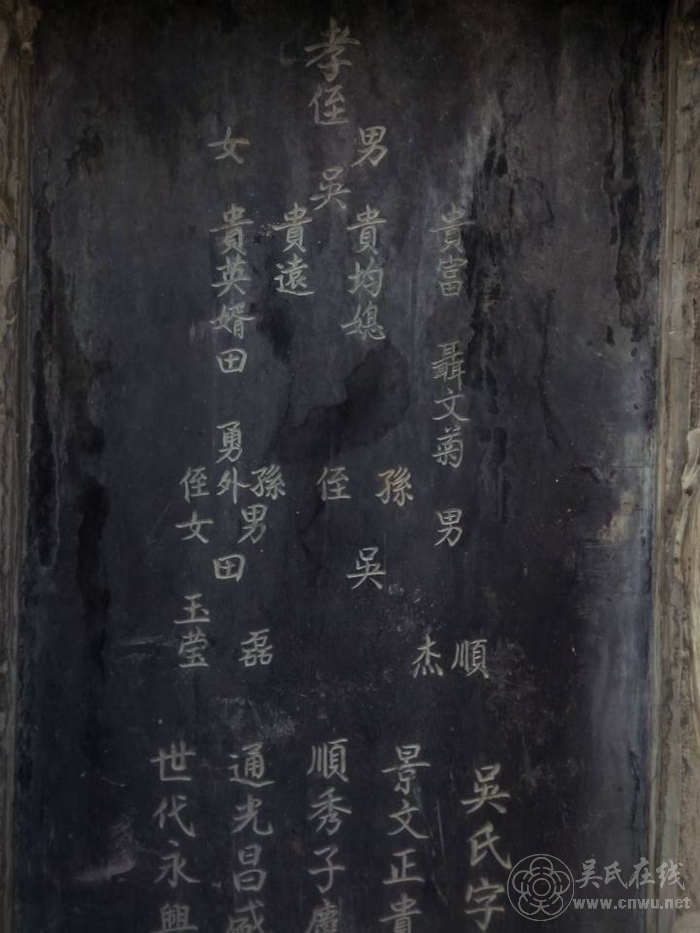 孝侄
男
吴
女
貴富 聶文菊 男 順
杰
貴均媳
孫
吴
貴遠
侄
貴英婿田勇
外孫男田磊
侄女玉莹
吴氏字
景文正貴
順秀子
通光昌盛
世代永興
吴氏在线
www.cnwu.net